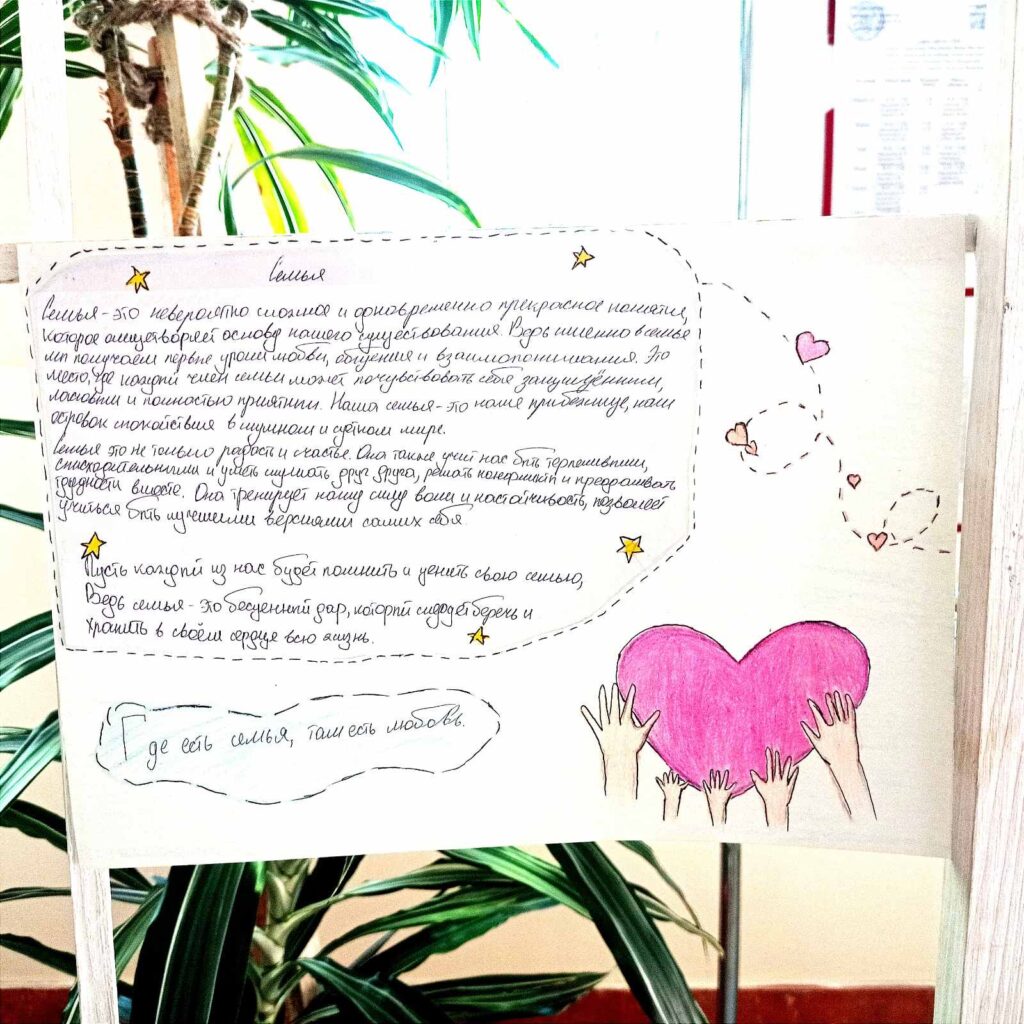 Семья
Семья - это невероятно сложное и одновременно прекрасное понятие,
которое олицетворяет основу нашего существования. Ведь именно в семье
мы получаем первые уроки любви, общения и взаимопонимания. Это
место, где каждый член семьи может почувствовать себя защищённым,
и полностью принятым. Наша семья - это наше прибежище, наш
островок спокойствия в шумном и суетном мире.
Семья это не только радость и счастье. Она также учит нас быть терпеливыми,
снисходительными и уметь слушать друг друга, решать конфликты и преодолевать
трудности вместе. Она тренирует нашу силу воли и настойчивость, позволяет
учиться быть лучшими версиями самих себя.
Пусть каждый из нас будет помнить и ценить свою семью,
Ведь семья - это бесценный дар, который следует беречь и
хранить в своём сердце всю жизнь.
Где есть семья, там есть любовь.